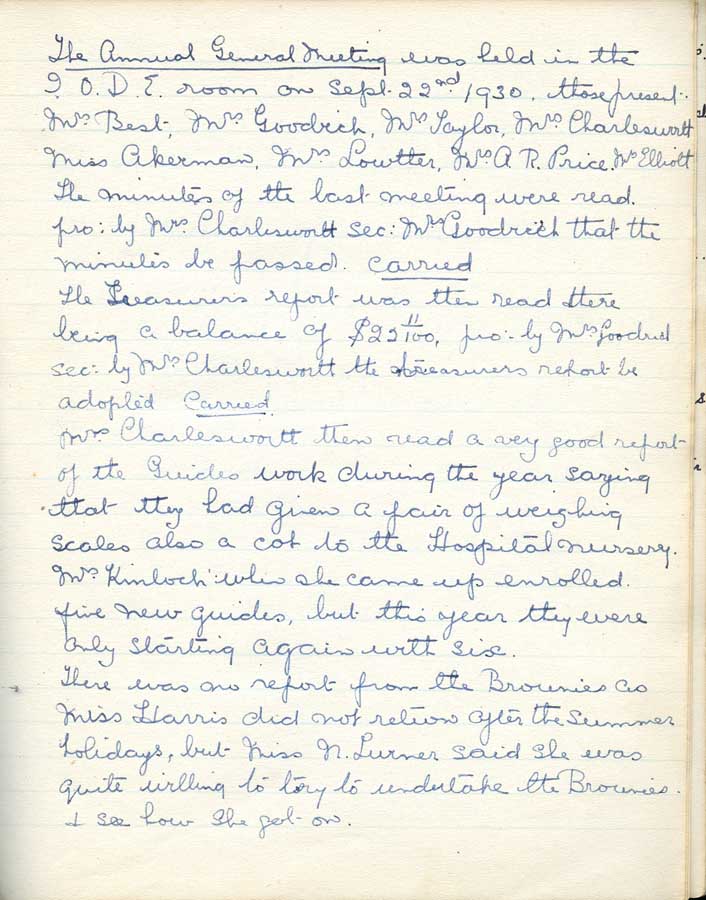 The Annual General Meeting was held in the
I. O. D. E. room on Sept. 22nd 1930. those present.
Mrs Best, Mrs Goodrich, Mrs Taylor, Mrs Charlesworth
Miss Akerman, Mrs Lowtter, Mrs A. R. Price. Mrs Elliott
The minutes of the last meeting were read.
pro: by Mrs. Charlesworth sec: Mrs Goodrich that the
minutes be passed. Carried
The Treasurer's report was then read there
being a balance of $22 11/100, pro:- by Mrs Goodrich
sec: by Mrs Charlesworth the treasurers report be
adopted Carried.
Mrs Charlesworth then read a very good report
of the Guides work during the year saying
that they had given a pair of weighing
scales also a cot to the Hospital nursery.
Mrs Kinloch when she came up enrolled
five new guides, but this year they were
only starting again with six.
There was no report from the Brownies as
Miss Harris did not return after the Summer
holidays, but Miss N. Turner said she was
quite willing to try to undertake the Brownies.
& see how she got on.